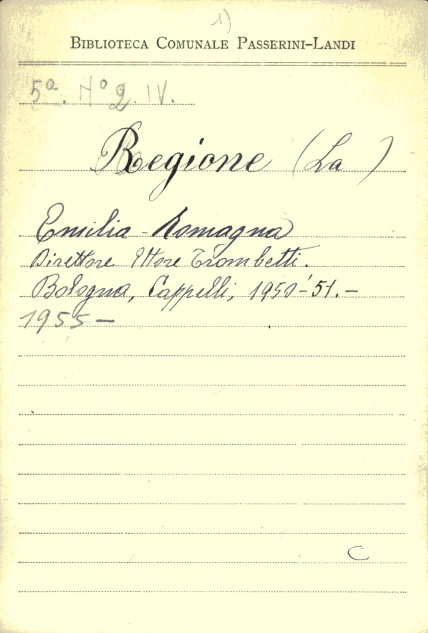 1)
BIBLIOTECA COMUNALE PASSERINI-LANDI
5ª. Nº 2. IV.
Regione (La)
Emilia-Romagna
Direttore Ettore Trombetti.
Bologna, Cappelli, 1950-'51.-
1955-
C